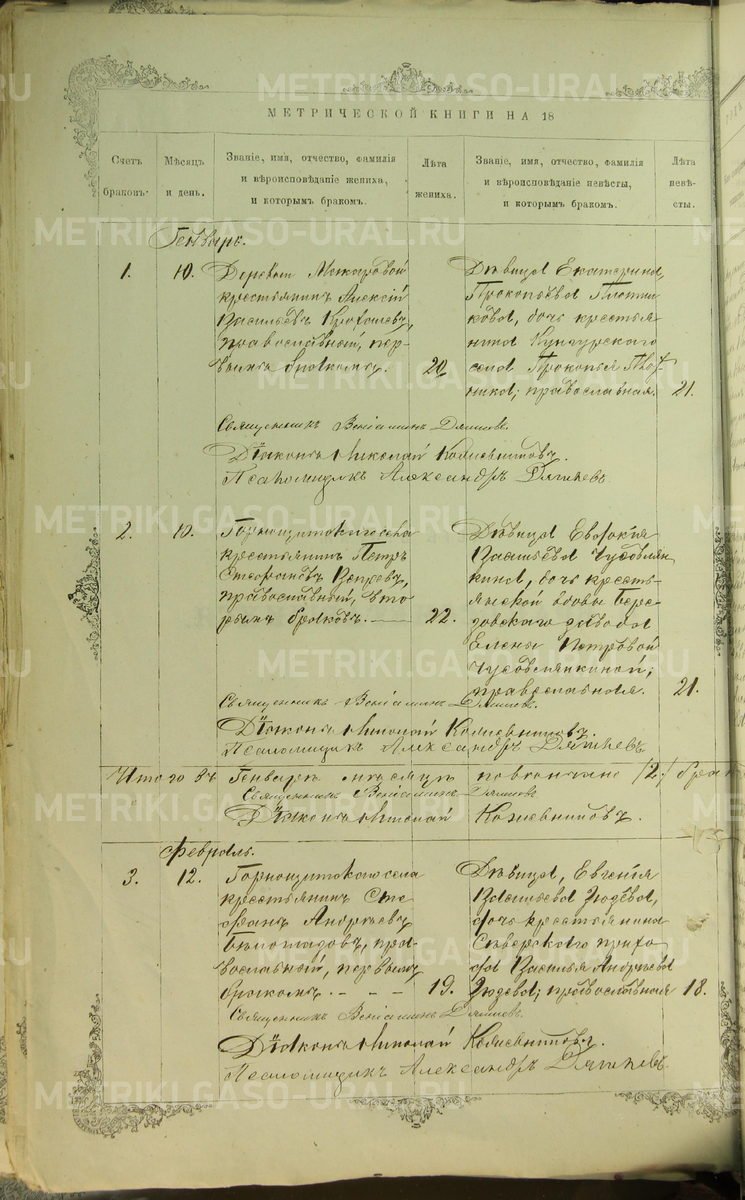 МЕТРИЧЕСКОЙ КНИГИ НА 18
Счетъ браковъ.
Мѣсяцъ и день.
Званіе, имя, отчество, фамилія и вѣроисповѣданіе жениха, и которымъ бракомъ.
Лѣта жениха.
Званіе, имя, отчество, фамилія и вѣроисповѣданіе невѣсты, и которымъ бракомъ.
Лѣта невѣсты.
Генварь.
1. 10.
Деревни
крестьянинъ Алексій
Васильевъ
православный, пер-
вымъ бракомъ. 20.
Дѣвица Екатерина
Прокопьева Плотни-
кова, дочь крестья-
нина Кунгурскаго
села Прокопья Плот-
никова; православная. 21.
Священникъ Веніаминъ
Діаконъ Николай Кожевниковъ.
Псаломщикъ Александръ Дягилевъ
2. 10.
Горнощитскаго села
крестьянинъ Петръ
Стефановъ
православный, вто-
рымъ бракомъ. 22.
Дѣвица Евдокія
Васильева Чусовлян-
кина, дочь кресть-
янской вдовы Бере-
зовскаго завода
Елены Петровой
Чусовлянкиной;
православная. 21.
Священникъ Веніаминъ
Діаконъ Николай Кожевниковъ.
Псаломщикъ Александръ Дягилевъ
Итого въ Генварѣ мѣсяцѣ повенчано /2/ брака
Священникъ Веніаминъ
Діаконъ Николай Кожевниковъ.
Февраль.
3. 12.
Горнощитскаго села
крестьянинъ Сте-
фанъ Андреевъ
пра-
вославный, первымъ
бракомъ. - - - 19.
Дѣвица, Евгенія
Васильева Зюзева,
дочь крестьянина
Сѣверскаго прихо-
да Василья Андреева
Зюзева; православная 18.
Священникъ Веніаминъ
Діаконъ Николай Кожевниковъ.
Псаломщикъ Александръ Дягилевъ
METRIKI.GASO-URAL.RU